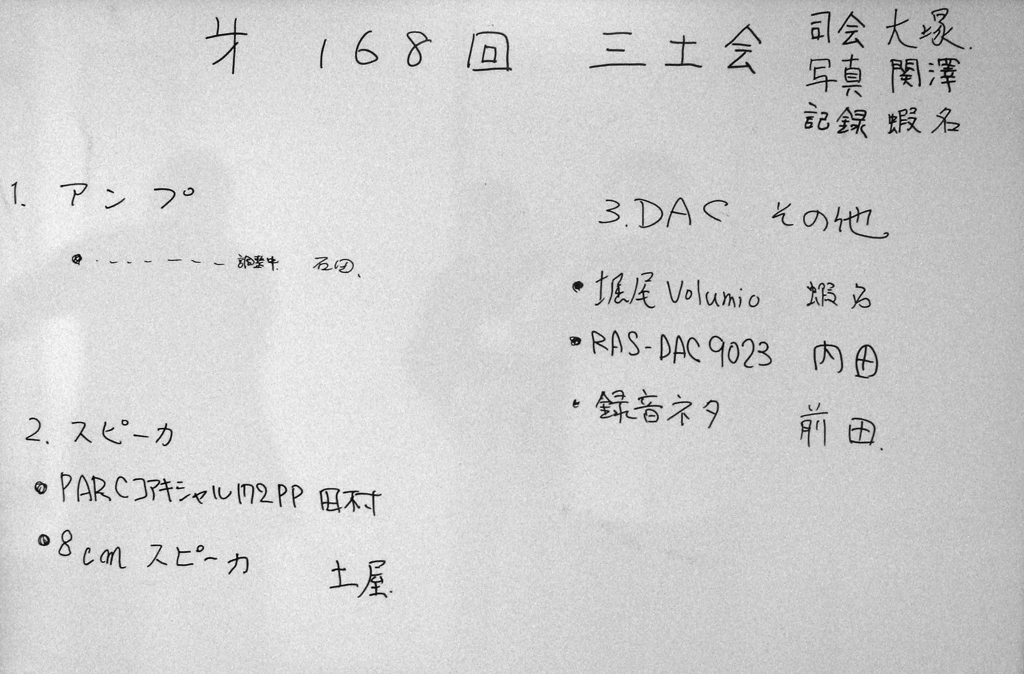 才 168回 三土会
司会 大塚.
写真 関澤
記録 蝦名
1. アンプ
• ・----- 調整中 石田.
2. スピーカ
• PARCコアキシャル172PP 田村
• 8cm スピーカ 土屋.
3. DAC その他
• 堀尾Volumio 蝦名
• RAS-DAC9023 内田
• 録音ネタ 前田.